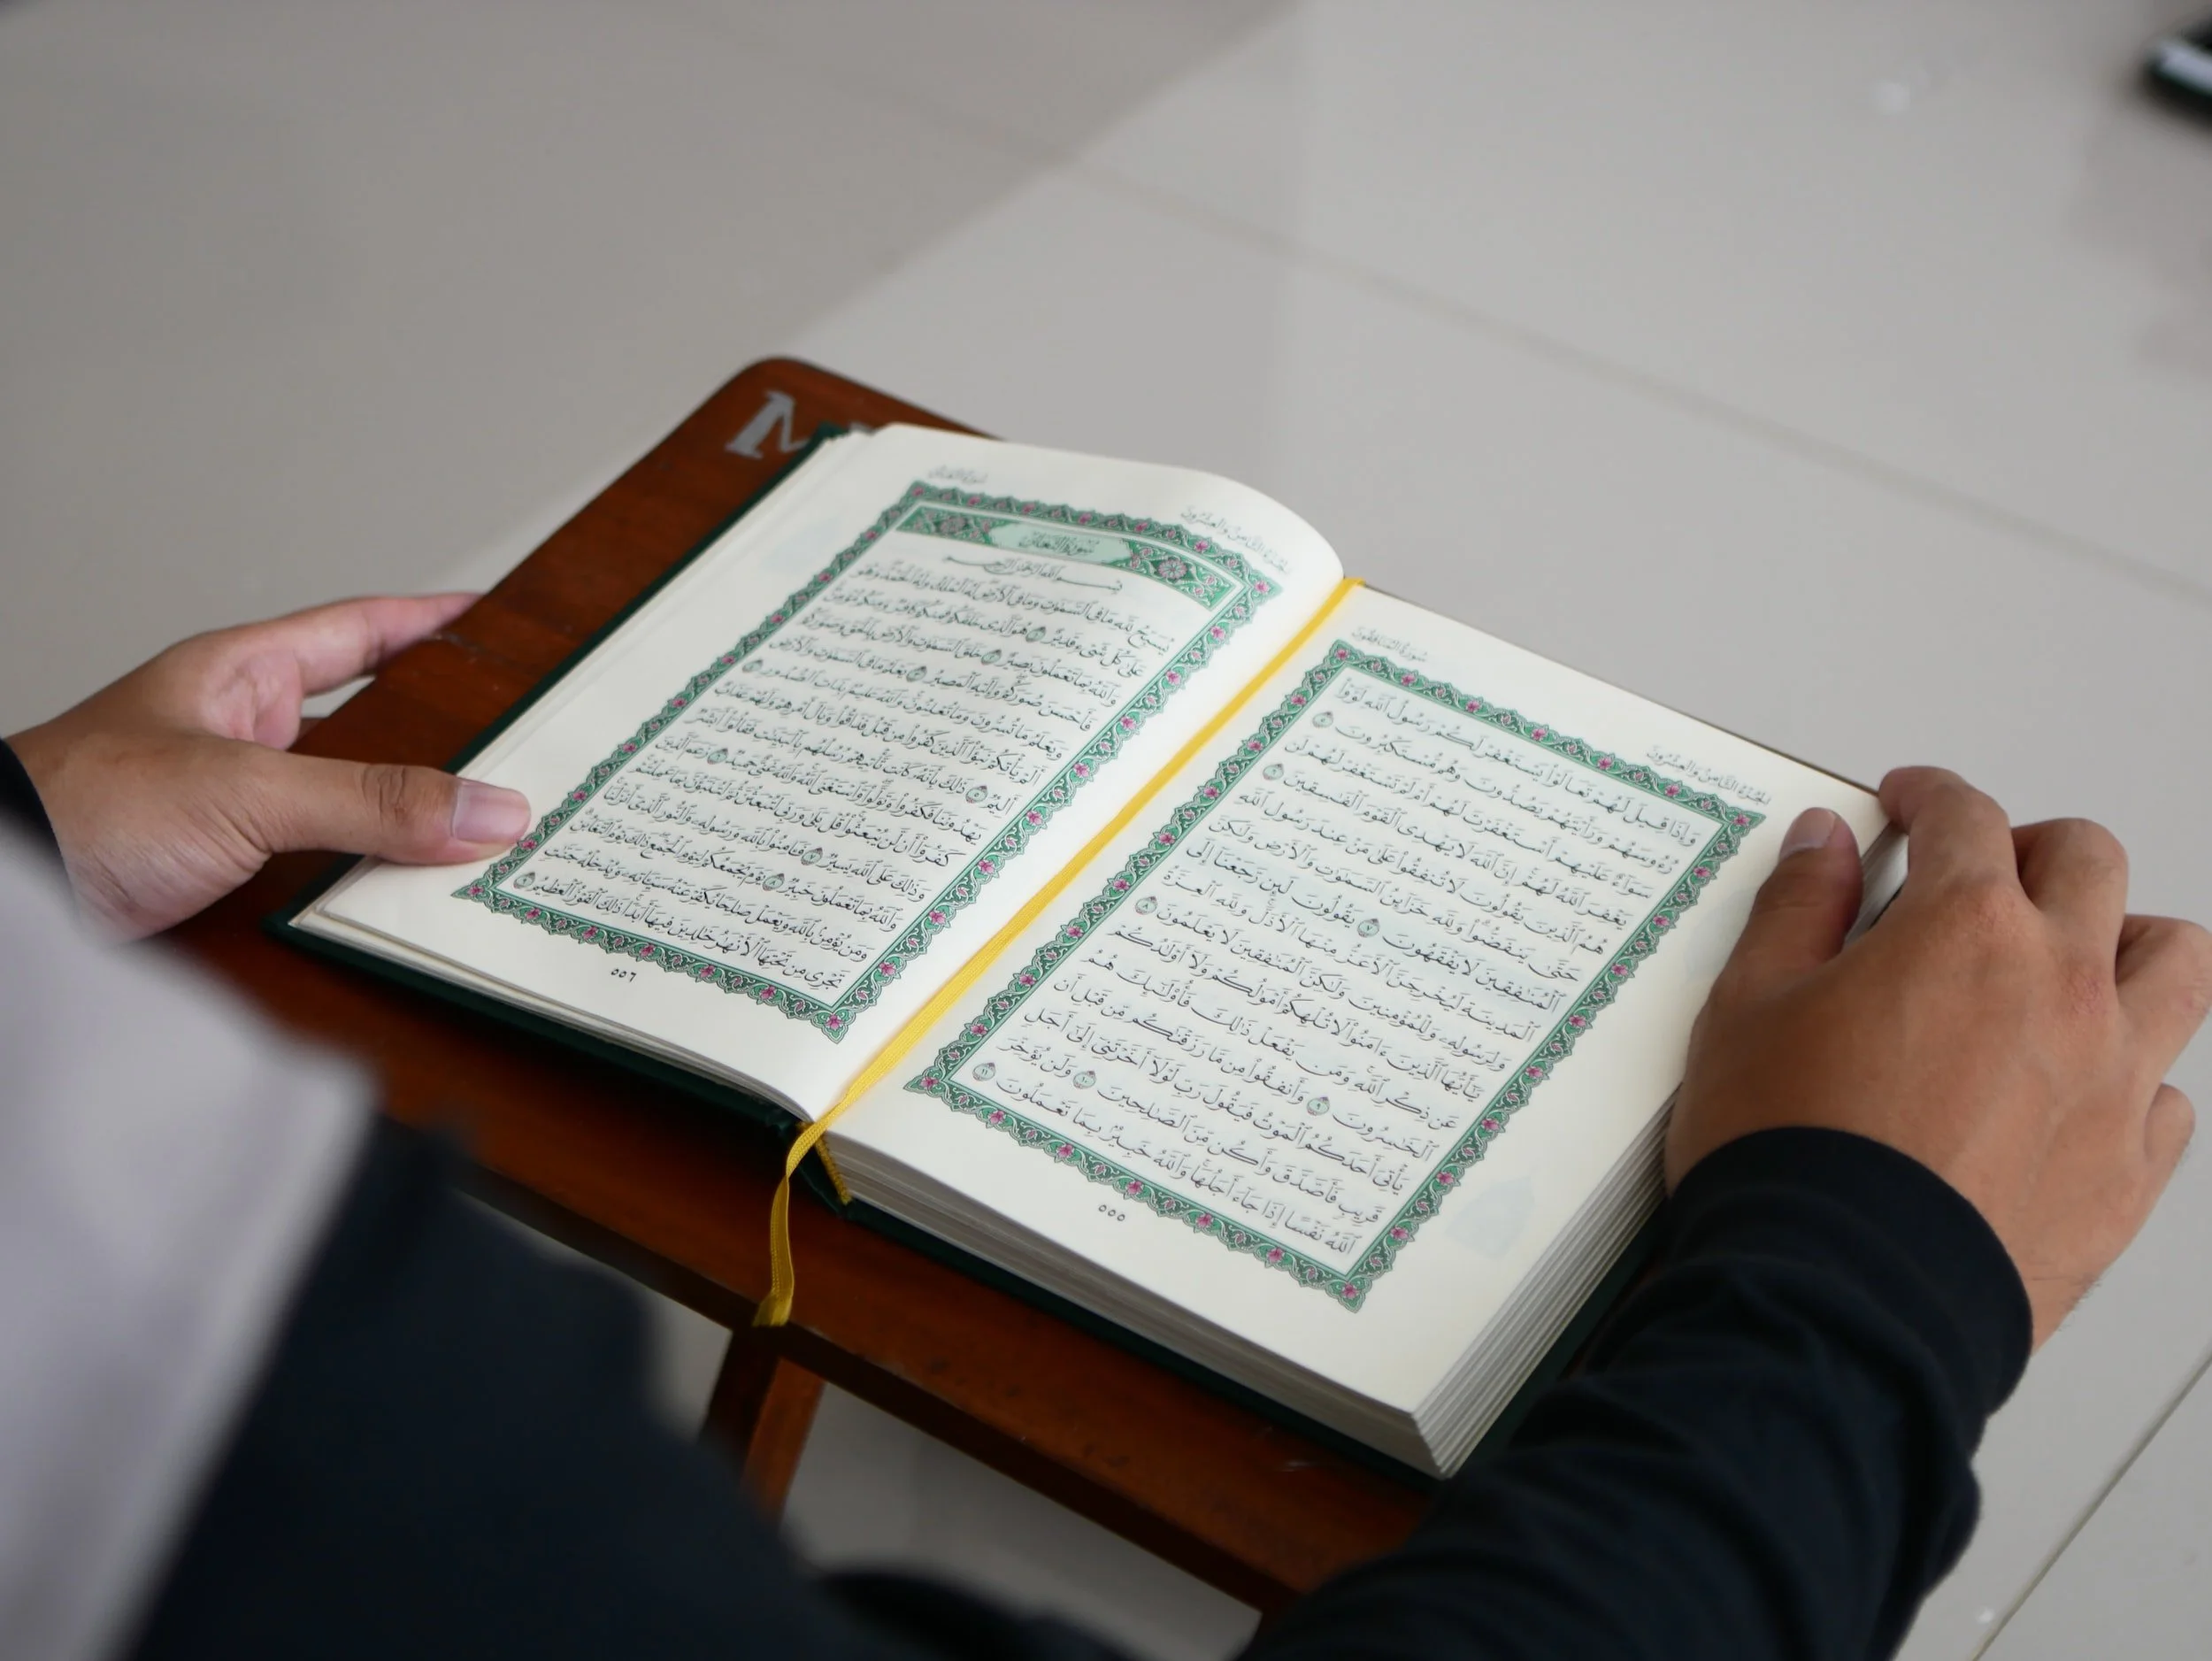 M
سُورَةُ المُنَافِقُونَ
الجُزْءُ الثَّامِنُ وَالعِشْرُونَ
وَإِذَا قِيلَ لَهُمْ تَعَالَوْا۟ يَسْتَغْفِرْ لَكُمْ رَسُولُ ٱللَّهِ لَوَّوْا۟
رُءُوسَهُمْ وَرَأَيْتَهُمْ يَصُدُّونَ وَهُم مُّسْتَكْبِرُونَ ٥
سَوَآءٌ عَلَيْهِمْ أَسْتَغْفَرْتَ لَهُمْ أَمْ لَمْ تَسْتَغْفِرْ لَهُمْ لَن
يَغْفِرَ ٱللَّهُ لَهُمْ إِنَّ ٱللَّهَ لَا يَهْدِى ٱلْقَوْمَ ٱلْفَٰسِقِينَ ٦
هُمُ ٱلَّذِينَ يَقُولُونَ لَا تُنفِقُوا۟ عَلَىٰ مَنْ عِندَ رَسُولِ ٱللَّهِ
حَتَّىٰ يَنفَضُّوا۟ وَلِلَّهِ خَزَآئِنُ ٱلسَّمَٰوَٰتِ وَٱلْأَرْضِ وَلَٰكِنَّ
ٱلْمُنَٰفِقِينَ لَا يَفْقَهُونَ ٧ يَقُولُونَ لَئِن رَّجَعْنَآ إِلَى
ٱلْمَدِينَةِ لَيُخْرِجَنَّ ٱلْأَعَزُّ مِنْهَا ٱلْأَذَلَّ وَلِلَّهِ ٱلْعِزَّةُ
وَلِرَسُولِهِۦ وَلِلْمُؤْمِنِينَ وَلَٰكِنَّ ٱلْمُنَٰفِقِينَ لَا يَعْلَمُونَ ٨
يَٰٓأَيُّهَا ٱلَّذِينَ ءَامَنُوا۟ لَا تُلْهِكُمْ أَمْوَٰلُكُمْ وَلَآ أَوْلَٰدُكُمْ
عَن ذِكْرِ ٱللَّهِ وَمَن يَفْعَلْ ذَٰلِكَ فَأُو۟لَٰٓئِكَ هُمُ
ٱلْخَٰسِرُونَ ٩ وَأَنفِقُوا۟ مِن مَّا رَزَقْنَٰكُم مِّن قَبْلِ أَن
يَأْتِىَ أَحَدَكُمُ ٱلْمَوْتُ فَيَقُولَ رَبِّ لَوْلَآ أَخَّرْتَنِىٓ إِلَىٰٓ أَجَلٍ
قَرِيبٍ فَأَصَّدَّقَ وَأَكُن مِّنَ ٱلصَّٰلِحِينَ ١٠ وَلَن يُؤَخِّرَ
ٱللَّهُ نَفْسًا إِذَا جَآءَ أَجَلُهَا وَٱللَّهُ خَبِيرٌۢ بِمَا تَعْمَلُونَ ١١
٥٥٥
سُورَةُ التَّغَابُنِ
الجُزْءُ الثَّامِنُ وَالعِشْرُونَ
سُورَةُ التَّغَابُنِ
بِسْمِ ٱللَّهِ ٱلرَّحْمَٰنِ ٱلرَّحِيمِ
يُسَبِّحُ لِلَّهِ مَا فِى ٱلسَّمَٰوَٰتِ وَمَا فِى ٱلْأَرْضِ لَهُ ٱلْمُلْكُ وَلَهُ ٱلْحَمْدُ وَهُوَ
عَلَىٰ كُلِّ شَىْءٍ قَدِيرٌ ١ هُوَ ٱلَّذِى خَلَقَكُمْ فَمِنكُمْ كَافِرٌ وَمِنكُم مُّؤْمِنٌ
وَٱللَّهُ بِمَا تَعْمَلُونَ بَصِيرٌ ٢ خَلَقَ ٱلسَّمَٰوَٰتِ وَٱلْأَرْضَ بِٱلْحَقِّ وَصَوَّرَكُمْ
فَأَحْسَنَ صُوَرَكُمْ وَإِلَيْهِ ٱلْمَصِيرُ ٣ يَعْلَمُ مَا فِى ٱلسَّمَٰوَٰتِ وَٱلْأَرْضِ
وَيَعْلَمُ مَا تُسِرُّونَ وَمَا تُعْلِنُونَ وَٱللَّهُ عَلِيمٌۢ بِذَاتِ ٱلصُّدُورِ ٤
أَلَمْ يَأْتِكُمْ نَبَؤُا۟ ٱلَّذِينَ كَفَرُوا۟ مِن قَبْلُ فَذَاقُوا۟ وَبَالَ أَمْرِهِمْ وَلَهُمْ عَذَابٌ
أَلِيمٌ ٥ ذَٰلِكَ بِأَنَّهُۥ كَانَت تَّأْتِيهِمْ رُسُلُهُم بِٱلْبَيِّنَٰتِ فَقَالُوٓا۟ أَبَشَرٌ
يَهْدُونَنَا فَكَفَرُوا۟ وَتَوَلَّوا۟ وَّٱسْتَغْنَى ٱللَّهُ وَٱللَّهُ غَنِىٌّ حَمِيدٌ ٦ زَعَمَ ٱلَّذِينَ
كَفَرُوٓا۟ أَن لَّن يُبْعَثُوا۟ قُلْ بَلَىٰ وَرَبِّى لَتُبْعَثُنَّ ثُمَّ لَتُنَبَّؤُنَّ بِمَا عَمِلْتُمْ
وَذَٰلِكَ عَلَى ٱللَّهِ يَسِيرٌ ٧ فَـَٔامِنُوا۟ بِٱللَّهِ وَرَسُولِهِۦ وَٱلنُّورِ ٱلَّذِىٓ أَنزَلْنَا
وَٱللَّهُ بِمَا تَعْمَلُونَ خَبِيرٌ ٨ يَوْمَ يَجْمَعُكُمْ لِيَوْمِ ٱلْجَمْعِ ذَٰلِكَ يَوْمُ ٱلتَّغَابُنِ
وَمَن يُؤْمِنۢ بِٱللَّهِ وَيَعْمَلْ صَٰلِحًا يُكَفِّرْ عَنْهُ سَيِّـَٔاتِهِۦ وَيُدْخِلْهُ جَنَّٰتٍ
تَجْرِى مِن تَحْتِهَا ٱلْأَنْهَٰرُ خَٰلِدِينَ فِيهَآ أَبَدًا ذَٰلِكَ ٱلْفَوْزُ ٱلْعَظِيمُ ٩
٥٥٦